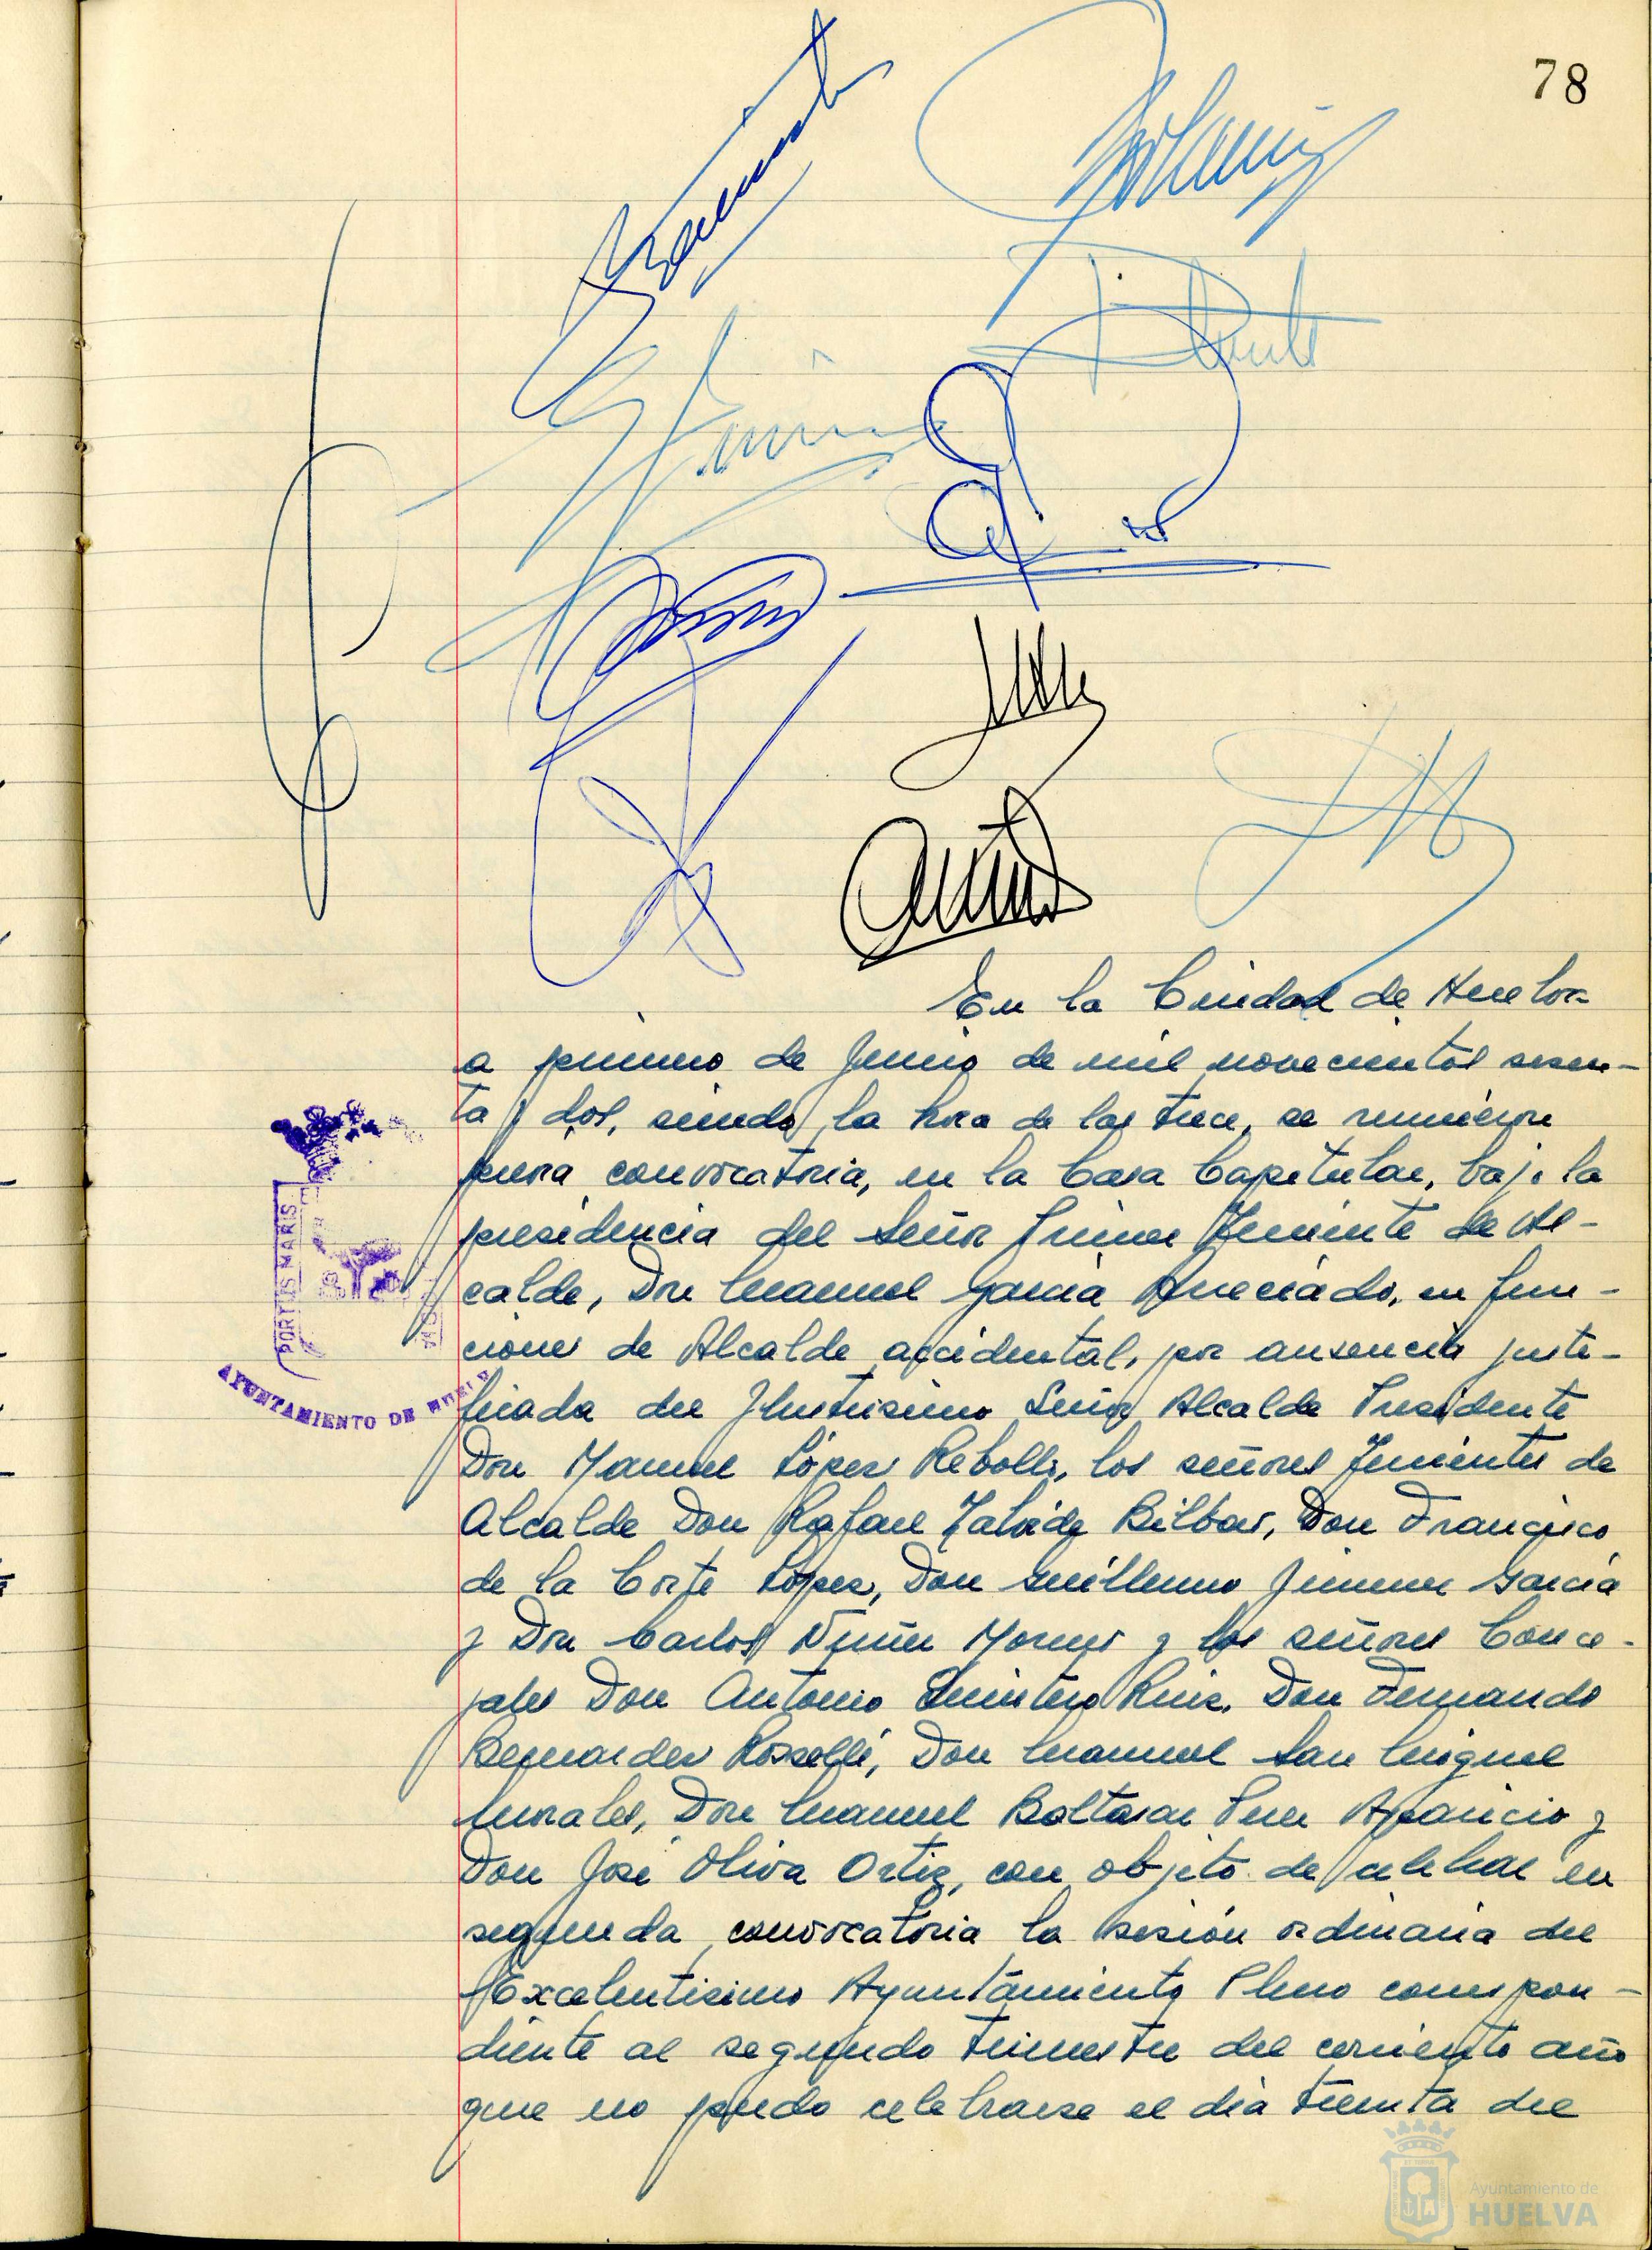 78
En la Ciudad de Huelva
a primero de Junio de mil novecientos sesen-
ta y dos, siendo la hora de las trece, se reunieron
previa convocatoria, en la Casa Capitular, bajo la
presidencia del Señor Primer Teniente de Al-
calde, Don Manuel García, en fun-
ciones de Alcalde accidental, por ausencia justi-
ficada del Ilustrísimo Señor Alcalde Presidente
Don Manuel López Rebollo, los señores Tenientes de
Alcalde Don Rafael Zalvide Bilbao, Don Francisco
de la Corte López, Don Guillermo Jimenez García
y Don Carlos Núñez Moreno y los señores Conce-
jales Don Antonio Quintero Ruiz, Don Fernando
Bernardez Rosselló, Don Manuel San Miguel
Morales, Don Manuel Baltasar Perez Aparicio y
Don José Oliva Ortiz, con objeto de celebrar en
segunda convocatoria la sesión ordinaria del
Excelentísimo Ayuntamiento Pleno correspon-
diente al segundo trimestre del corriente año
que no pudo celebrarse el día treinta del
PORTUS MARIS
AYUNTAMIENTO DE HUELVA
Ayuntamiento de
HUELVA